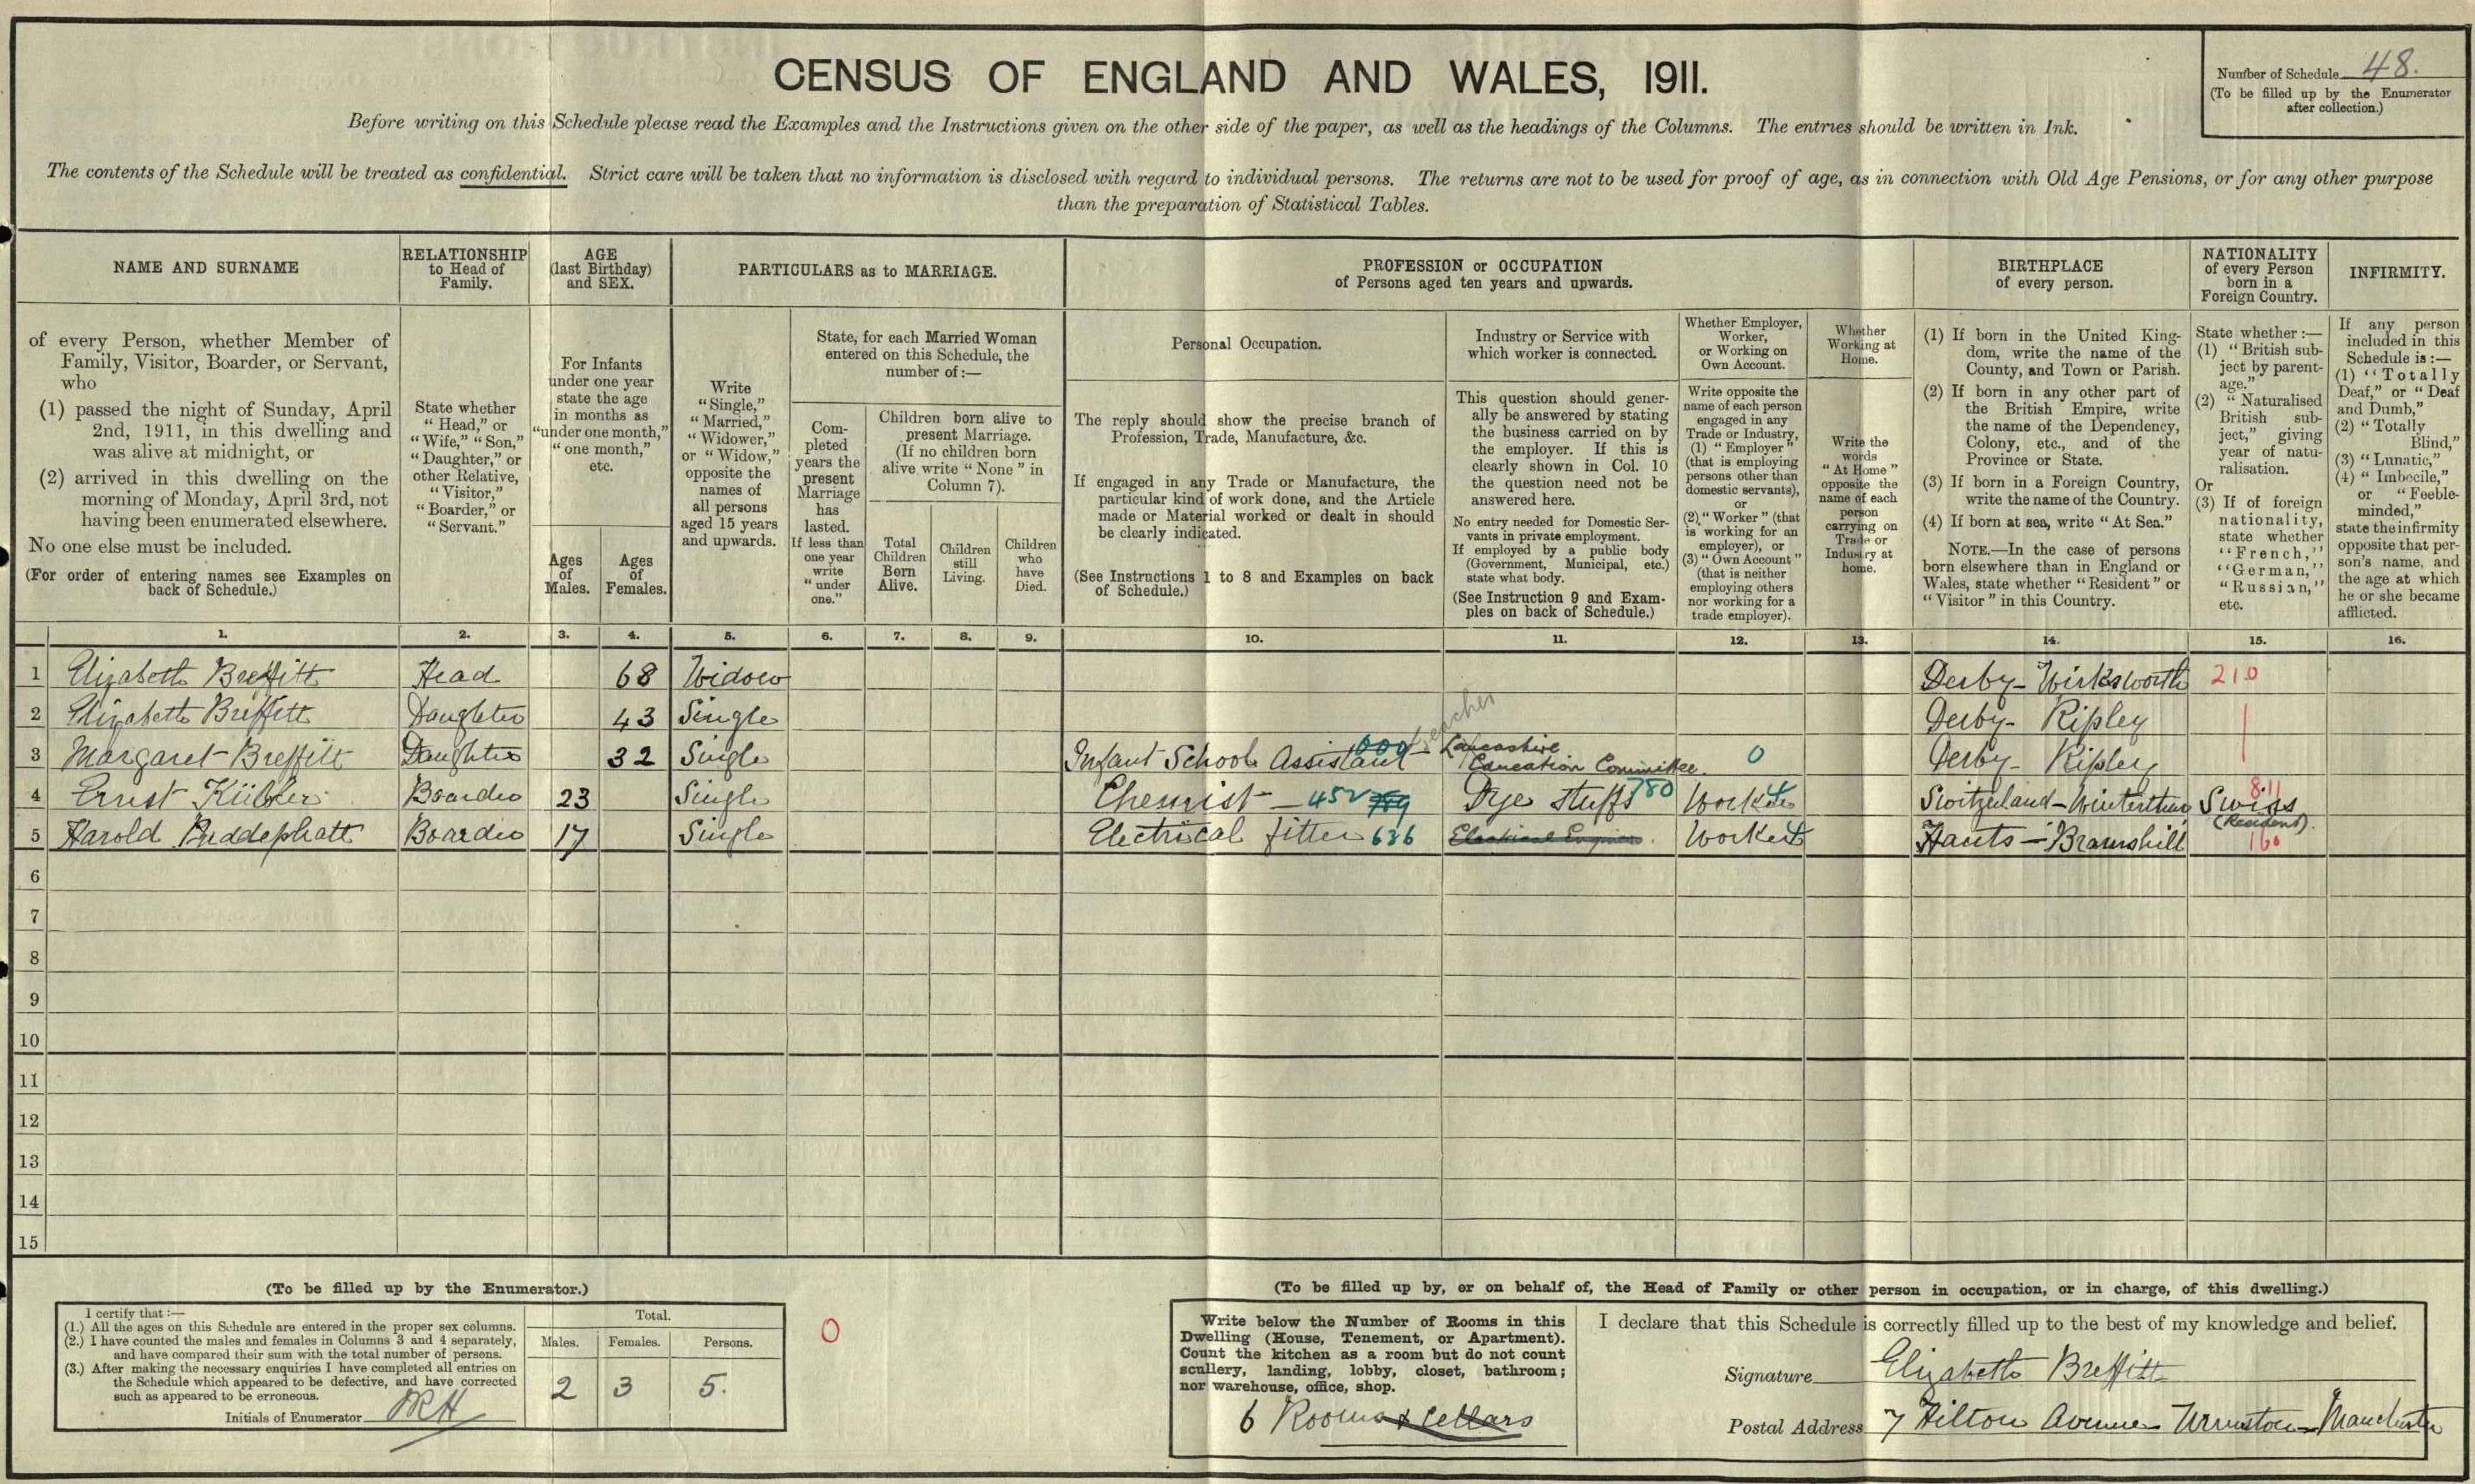 CENSUS OF ENGLAND AND WALES, 1911.
Number of Schedule 48.
(To be filled up by the Enumerator
after collection.)
Before writing on this Schedule please read the Examples and the Instructions given on the other side of the paper, as well as the headings of the Columns. The entries should be written in Ink.
The contents of the Schedule will be treated as confidential. Strict care will be taken that no information is disclosed with regard to individual persons. The returns are not to be used for proof of age, as in connection with Old Age Pensions, or for any other purpose
than the preparation of Statistical Tables.
NAME AND SURNAME
of every Person, whether Member of
Family, Visitor, Boarder, or Servant,
who
(1) passed the night of Sunday, April
2nd, 1911, in this dwelling and
was alive at midnight, or
(2) arrived in this dwelling on the
morning of Monday, April 3rd, not
having been enumerated elsewhere.
No one else must be included.
(For order of entering names see Examples on
back of Schedule.)
RELATIONSHIP
to Head of
Family.
State whether
"Head," or
"Wife," "Son,"
"Daughter," or
other Relative,
"Visitor,"
"Boarder," or
"Servant."
AGE
(last Birthday)
and SEX.
For Infants
under one year
state the age
in months as
"under one month,"
"one month,"
etc.
Ages
of
Males.
Ages
of
Females.
PARTICULARS as to MARRIAGE.
Write
"Single,"
"Married,"
"Widower,"
or "Widow,"
opposite the
names of
all persons
aged 15 years
and upwards.
State, for each Married Woman
entered on this Schedule, the
number of:—
Com-
pleted
years the
present
Marriage
has
lasted.
If less than
one year
write
"under
one."
Children born alive to
present Marriage.
(If no children born
alive write "None" in
Column 7).
Total
Children
Born
Alive.
Children
still
Living.
Children
who
have
Died.
PROFESSION or OCCUPATION
of Persons aged ten years and upwards.
Personal Occupation.
The reply should show the precise branch of
Profession, Trade, Manufacture, &c.
If engaged in any Trade or Manufacture, the
particular kind of work done, and the Article
made or Material worked or dealt in should
be clearly indicated.
(See Instructions 1 to 8 and Examples on back
of Schedule.)
Industry or Service with
which worker is connected.
This question should gener-
ally be answered by stating
the business carried on by
the employer. If this is
clearly shown in Col. 10
the question need not be
answered here.
No entry needed for Domestic Ser-
vants in private employment.
If employed by a public body
(Government, Municipal, etc.)
state what body.
(See Instruction 9 and Exam-
ples on back of Schedule.)
Whether Employer,
Worker,
or Working on
Own Account.
Write opposite the
name of each person
engaged in any
Trade or Industry,
(1) "Employer"
(that is employing
persons other than
domestic servants),
or
(2) "Worker" (that
is working for an
employer), or
(3) "Own Account"
(that is neither
employing others
nor working for a
trade employer).
Whether
Working at
Home.
Write the
words
"At Home"
opposite the
name of each
person
carrying on
Trade or
Industry at
home.
BIRTHPLACE
of every person.
(1) If born in the United King-
dom, write the name of the
County, and Town or Parish.
(2) If born in any other part of
the British Empire, write
the name of the Dependency,
Colony, etc., and of the
Province or State.
(3) If born in a Foreign Country,
write the name of the Country.
(4) If born at sea, write "At Sea."
NOTE.—In the case of persons
born elsewhere than in England or
Wales, state whether "Resident" or
"Visitor" in this Country.
NATIONALITY
of every Person
born in a
Foreign Country.
State whether:—
(1) "British sub-
ject by parent-
age."
(2) "Naturalised
British sub-
ject," giving
year of natu-
ralisation.
Or
(3) If of foreign
nationality,
state whether
"French,"
"German,"
"Russian,"
etc.
INFIRMITY.
If any person
included in this
Schedule is:—
(1) "Totally
Deaf," or "Deaf
and Dumb,"
(2) "Totally
Blind,"
(3) "Lunatic,"
(4) "Imbecile,"
or "Feeble-
minded,"
state the infirmity
opposite that per-
son's name, and
the age at which
he or she became
afflicted.
1. 2. 3. 4. 5. 6. 7. 8. 9. 10. 11. 12. 13. 14. 15. 16.
1 Elizabeth Breffitt Head 68 Widow Derby - Wirksworth 210
2 Elizabeth Breffitt Daughter 43 Single Derby - Ripley
3 Margaret Breffitt Daughter 32 Single Infant School Assistant 000 teacher Lancashire Education Committee. 0 Derby - Ripley
4 Ernst Kübler Boarder 23 Single Chemist - 452 Dye stuffs 780 Worker Switzerland - Winterthur Swiss 811
(Resident).
5 Harold Puddephatt Boarder 17 Single Electrical fitter 636 Electrical Engineer. Worker Hants - Bramshill 160
6
7
8
9
10
11
12
13
14
15
(To be filled up by the Enumerator.)
I certify that:—
(1.) All the ages on this Schedule are entered in the proper sex columns.
(2.) I have counted the males and females in Columns 3 and 4 separately,
and have compared their sum with the total number of persons.
(3.) After making the necessary enquiries I have completed all entries on
the Schedule which appeared to be defective, and have corrected
such as appeared to be erroneous.
Initials of Enumerator
Total.
Males. Females. Persons.
2 3 5.
0
(To be filled up by, or on behalf of, the Head of Family or other person in occupation, or in charge, of this dwelling.)
Write below the Number of Rooms in this
Dwelling (House, Tenement, or Apartment).
Count the kitchen as a room but do not count
scullery, landing, lobby, closet, bathroom;
nor warehouse, office, shop.
6 Rooms & Cellars
I declare that this Schedule is correctly filled up to the best of my knowledge and belief.
Signature Elizabeth Breffitt
Postal Address 7 Hilton Avenue Urmston - Manchester